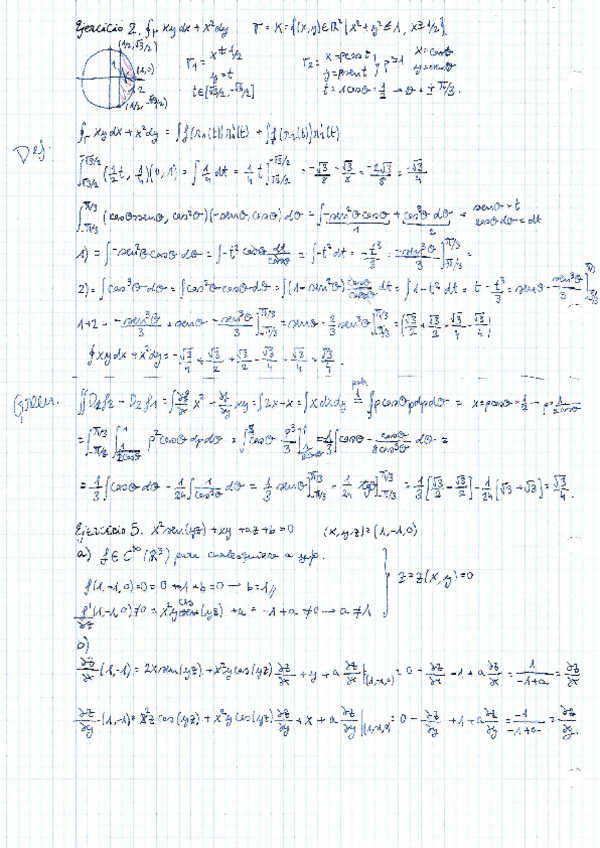 Ejercicio 2. ∮_Γ xydx + x²dy   Γ = K = {(x,y) ∈ ℝ² | x²+y² ≤ 1, x ≥ 1/2}.
(1/2, √3/2)
(1,0)
(1/2, -√3/2)
x = 1/2
y = t
t ∈ [√3/2, -√3/2]
x = ρcost ; ρ = 1
y = ρsent
Def.
∮_Γ xydx + x²dy =
∫_{√3/2}^{-√3/2} (1/2 t, 1/4)(0,1) = ∫ 1/4 dt = 1/4 t ]_{√3/2}^{-√3/2} = -√3/8 - √3/8 = -2√3/8 = -√3/4
∫_{-π/3}^{π/3} (cosθsenθ, cos²θ)(-senθ, cosθ) dθ = ∫ -sen²θcosθ + cos³θ dθ = senθ = t
cosθdθ = dt
1) = ∫ -sen²θcosθ dθ = ∫ -t² cosθ dt/cosθ = ∫ -t² dt = -t³/3 = -sen³θ/3 ]_{-π/3}^{π/3} =
2) = ∫ cos³θ dθ = ∫ cos²θ cosθ dθ = ∫ (1-sen²θ) = ∫ 1-t² dt = t - t³/3 = senθ - sen³θ/3
1+2 = -sen³θ/3 + senθ - sen³θ/3 ]_{-π/3}^{π/3} = senθ - 2/3 sen³θ ]_{-π/3}^{π/3} =
∮ xydx + x²dy = -√3/4 + √3/2 + √3/2 - √3/4 - √3/4 = √3/4.
Green.
∬ D₁f₂ - D₂f₁ = ∫ ∂/∂x x² - ∂/∂y xy = ∫ 2x - x = ∫ x dxdy = ∫ ρcosθ ρdρdθ = x = ρcosθ = 1/2 → ρ = 1/2cosθ
= ∫_{-π/3}^{π/3} ∫_{1/2cosθ}^{1} ρ²cosθ dρdθ = ∫ cosθ ρ³/3 ]_{1/2cosθ}^{1} = 1/3 ∫ cosθ - cosθ/8cos³θ dθ =
= 1/3 ∫ cosθdθ - 1/24 ∫ 1/cos²θ dθ = 1/3 senθ ]_{-π/3}^{π/3} - 1/24 tgθ ]_{-π/3}^{π/3} = 1/3 [√3/2 + √3/2] - 1/24 [√3 + √3] = √3/4.
Ejercicio 5. x²sen(yz) + xy + az + b = 0   (x,y,z) = (1,-1,0)
a) f ∈ C^∞(ℝ³) para cualesquiera a y b.
f(1,-1,0) = 0 = 0 - 1 + b = 0 → b = 1
z = z(x,y) = 0
∂f/∂z (1,-1,0) ≠ 0 = x²y cos(yz) + a = -1 + a ≠ 0 → a ≠ 1
b)
∂z/∂x (1,-1) = 2xsen(yz) + x²ycos(yz) ∂z/∂x + y + a ∂z/∂x |_(1,-1,0) = 0 - ∂z/∂x - 1 + a ∂z/∂x = 1/(-1+a) = ∂z/∂x
∂z/∂y (1,-1) = x²z cos(yz) + x²ycos(yz) ∂z/∂y + x + a ∂z/∂y |_(1,-1,0) = 0 - ∂z/∂y + 1 + a ∂z/∂y = -1/(-1+a) = ∂z/∂y.